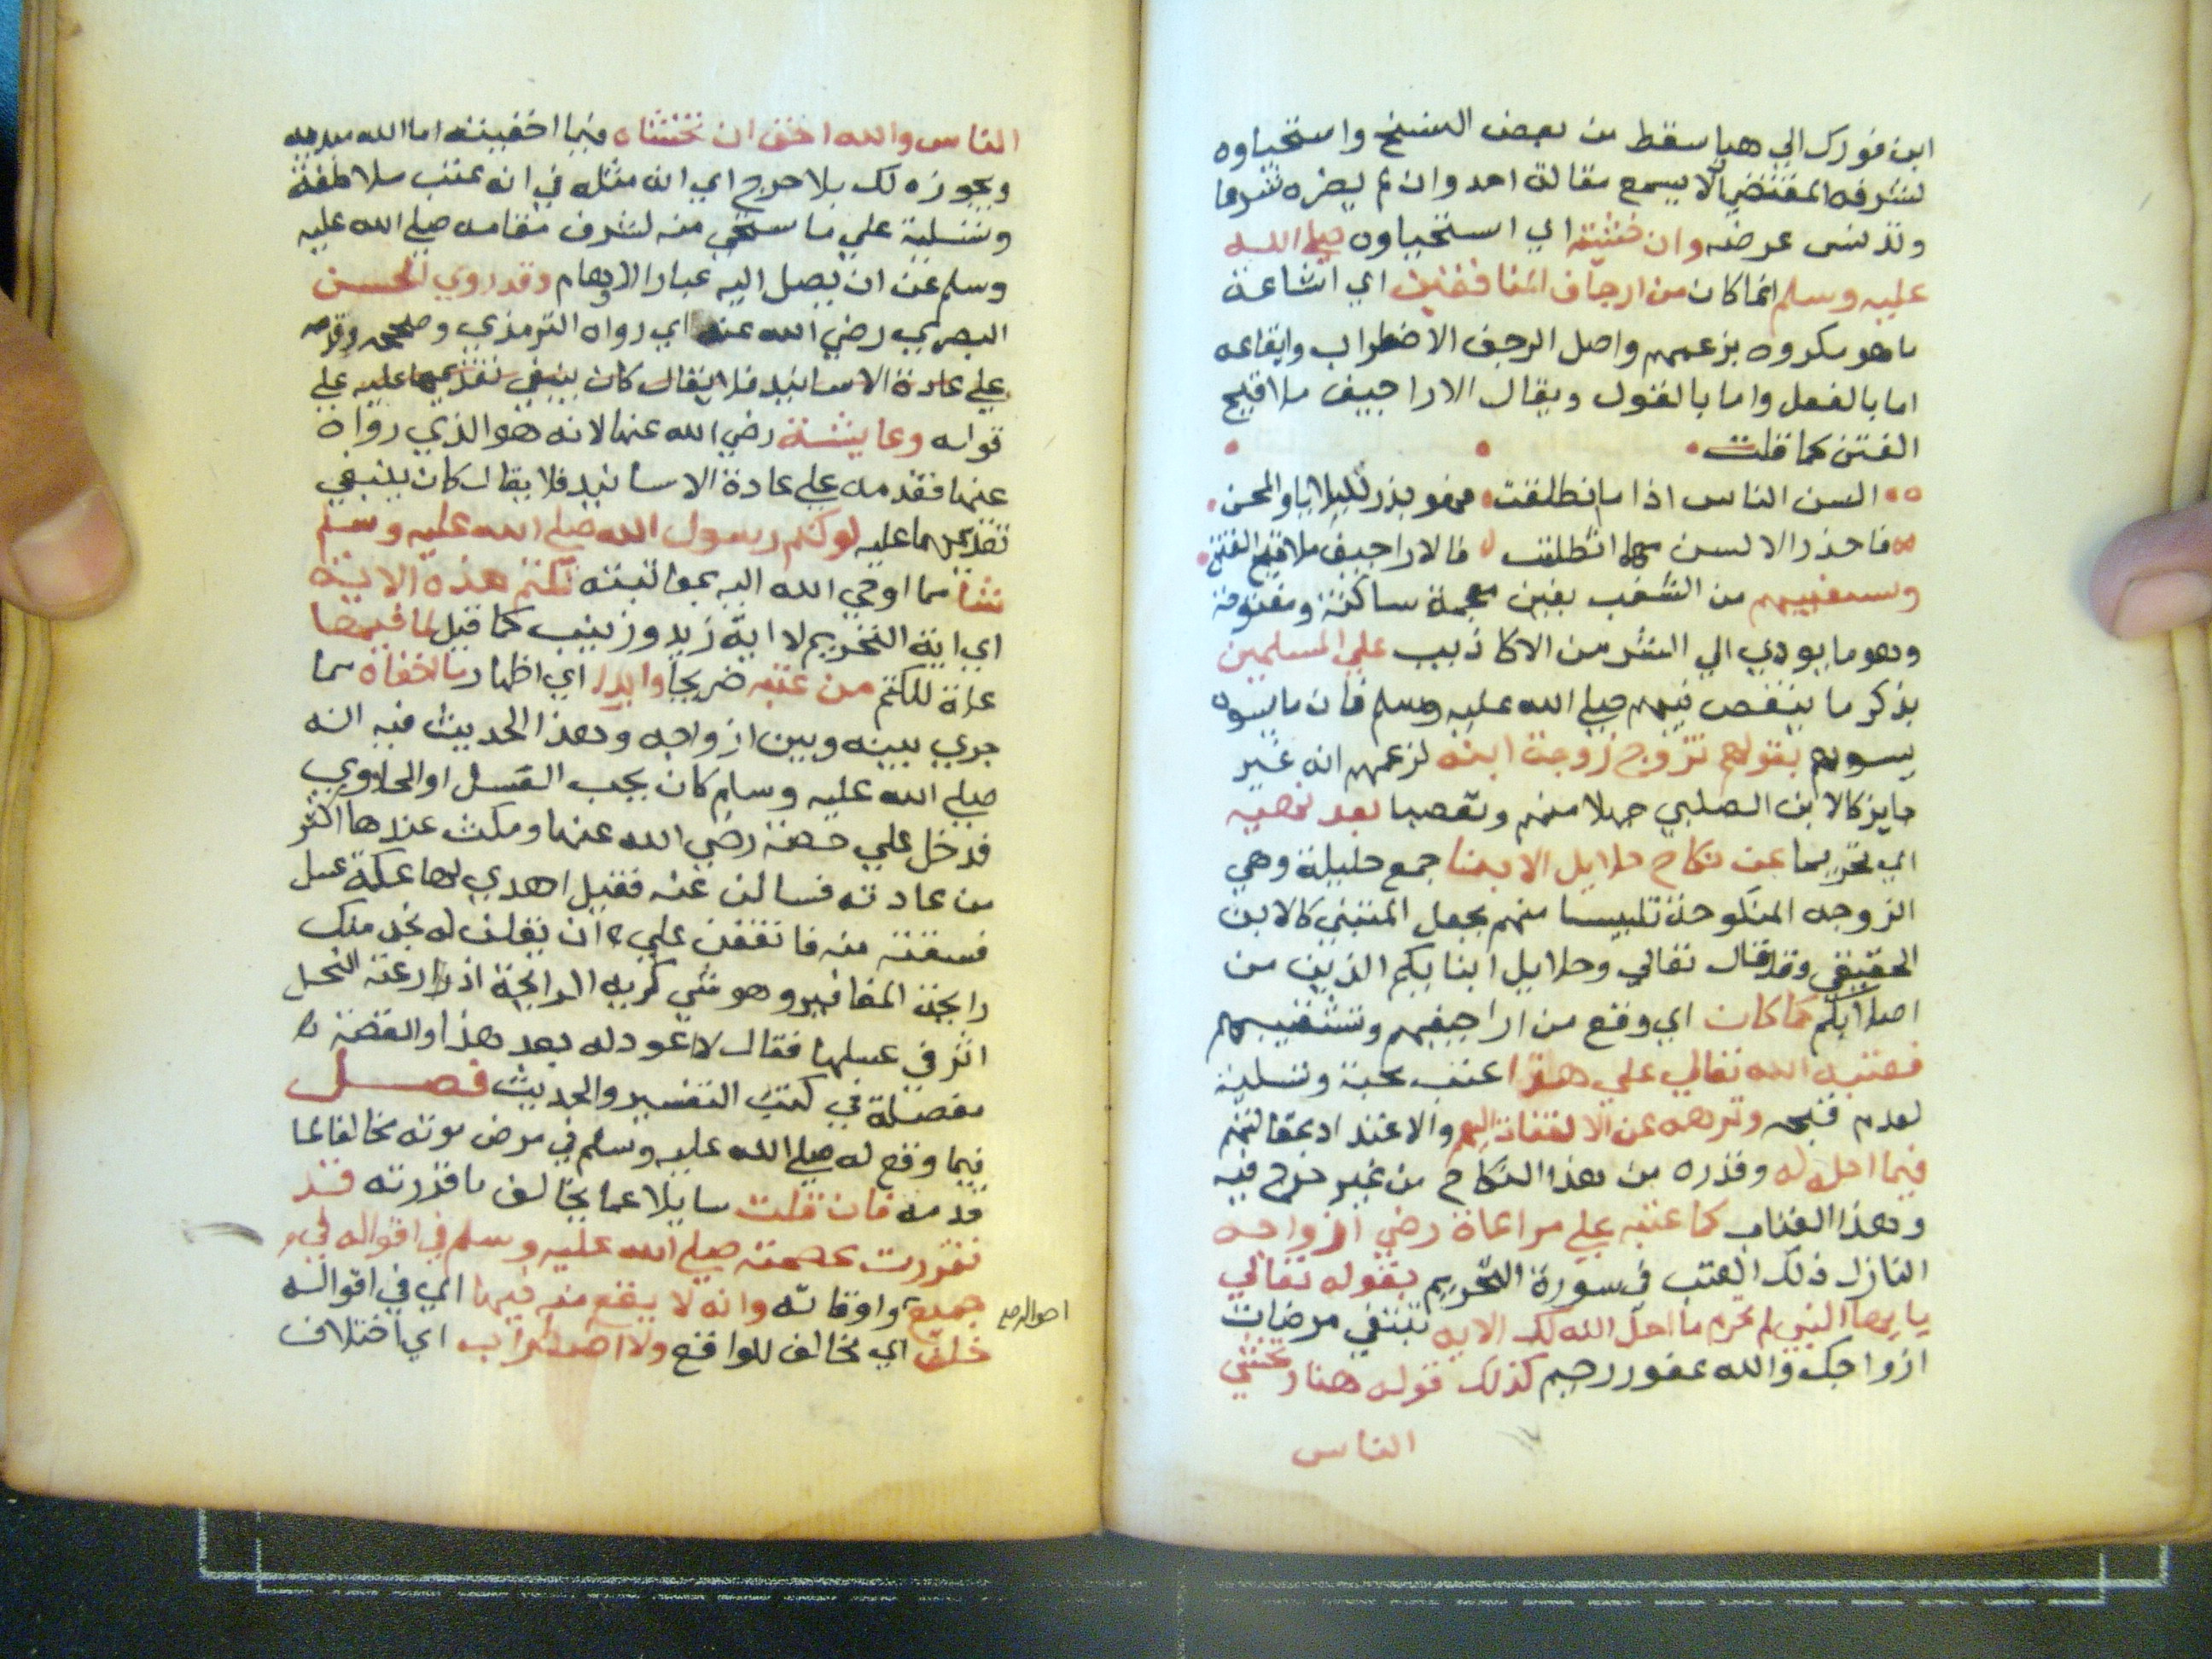 ابن فورك الي هنا سقط من بعض النسخ واستحياوه
لشرفه المقتضي الا يسمع مقالة احد وان لم يضره شرفا
وتدنس عرضه وان خشيته اي استحياوه صلي الله
عليه وسلم انما كان من ارجاف المنافقين اي اشاعة
ما هو مكروه بزعمهم واصل الرجف الاضطراب وايقاعه
اما بالفعل واما بالقول ويقال الاراجيف ملاقيح
الفتن كما قلت
السن الناس اذا ما انطلقت فهو بذر للبلايا والمحن
فاحذر الالسن مهما انطلقت فالاراجيف ملاقيح الفتن
وتشغيبهم من الشغب بغين معجمة ساكنة ومفتوحة
وهو ما يودي الي الشر من الاكاذيب علي المسلمين
بذكر ما ينقص نبيهم صلي الله عليه وسلم فان ما يسوه
يسوهم بقولهم تزوج زوجة ابنه لزعمهم انه غير
جايز كالابن الصلبي جهلا منهم وتعصبا بعد نهيه
اي تحريما عن نكاح حلايل الابنا جمع حليلة وهي
الزوجه المنكوحة تلبيسا منهم بجعل المتبني كالابن
الحقيقي وقد قال تعالي وحلايل ابنايكم الذين من
اصلابكم كما كان اي وقع من اراجيفهم وتشغيبهم
فعتبه الله تعالي علي هذا عتب محبة وتسلية
لعدم قبحه ونزهه عن الالتفات اليهم والاعتداد بمقالتهم
فيما احله له وقدره من هذا النكاح من غير حرج فيه
وهذا العتاب كما عتبه علي مراعاة رضي ازواجه
النازل ذلك العتب في سورة التحريم بقوله تعالي
يا يها النبي لم تحرم ما احل الله لك الايه تبتغي مرضات
ازواجك والله غفور رحيم كذلك قوله هنا وتخشي
الناس
الناس والله احق ان تخشاه فيما اخفيته اما الله مبديه
ويجوزه لك بلا حرج اي انه مثله في انه عتب ملاطفة
وتسلية علي ما ستحي منه لشرف مقامه صلي الله عليه
وسلم عن ان يصل اليه غبار الاوهام وقد روي الحسن
البصري رضي الله عنه اي رواه الترمذي وصححه وقدمه
علي عادة الاسانيد فلا يقال كان ينبغي تقديمها عليه علي
قوله وعايشة رضي الله عنها لانه هو الذي رواه
عنها فقدمه علي عادة الاسانيد فلا يقال كان ينبغي
تقديمها عليه لو كتم رسول الله صلي الله عليه وسلم
شيا مما اوحي الله اليه بمعاتبته لكتم هذه الاية
اي اية التحريم لا اية زيد وزينب كما قيل لما فيها
علة للكتم من عتبه صريحا وابدا اي اظهار ما اخفاه مما
جري بينه وبين ازواجه وهذا الحديث فيه انه
صلي الله عليه وسلم كان يحب العسل او الحلاوي
فدخل علي حفصة رضي الله عنها ومكث عندها اكثر
من عادته فسالن عنه فقيل اهدي لها عكة عسل
فسقته منه فاتفقن علي ان يقلن له نجد منك
رايحة المغافير وهو شي كريه الرايحة اذا رعته النحل
اثر في عسلها فقال لا اعود له بعد هذا والقصة
مفصلة في كتب التفسير والحديث فصل
فيما وقع له صلي الله عليه وسلم في مرض موته مخالفا لما
قدمه فان قلت سايلا عما يخالف ما قررته قد
تقررت عصمته صلي الله عليه وسلم في اقواله في
جميع واوقاته وانه لا يقع منه فيها اي في اقواله
احواله صح
خلف اي مخالف للواقع ولا اضطراب اي اختلاف